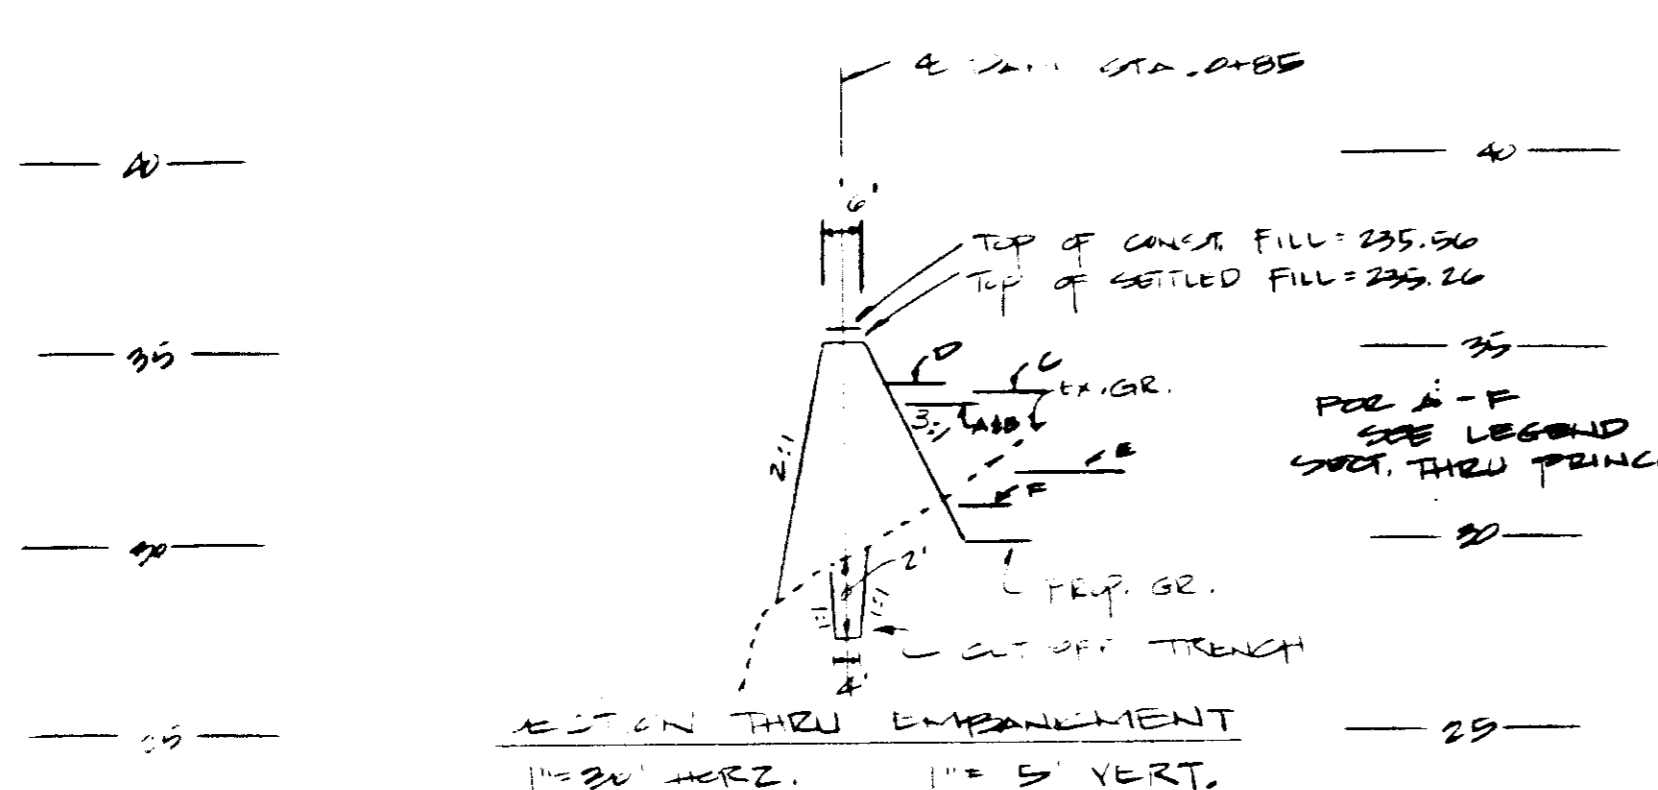 ℄ DAM STA. 0+85
40
40
6'
TOP OF CONST. FILL = 235.56
TOP OF SETTLED FILL = 235.26
35
35
D
C
EX. GR.
3:1
A&B
FOR A - F
SEE LEGEND
SECT. THRU PRINC
2:1
E
F
30
30
2'
PROP. GR.
1:1
1:1
CUT OFF TRENCH
4'
SECTION THRU EMBANKMENT
25
25
1" = 30' HORZ. 1" = 5' VERT.